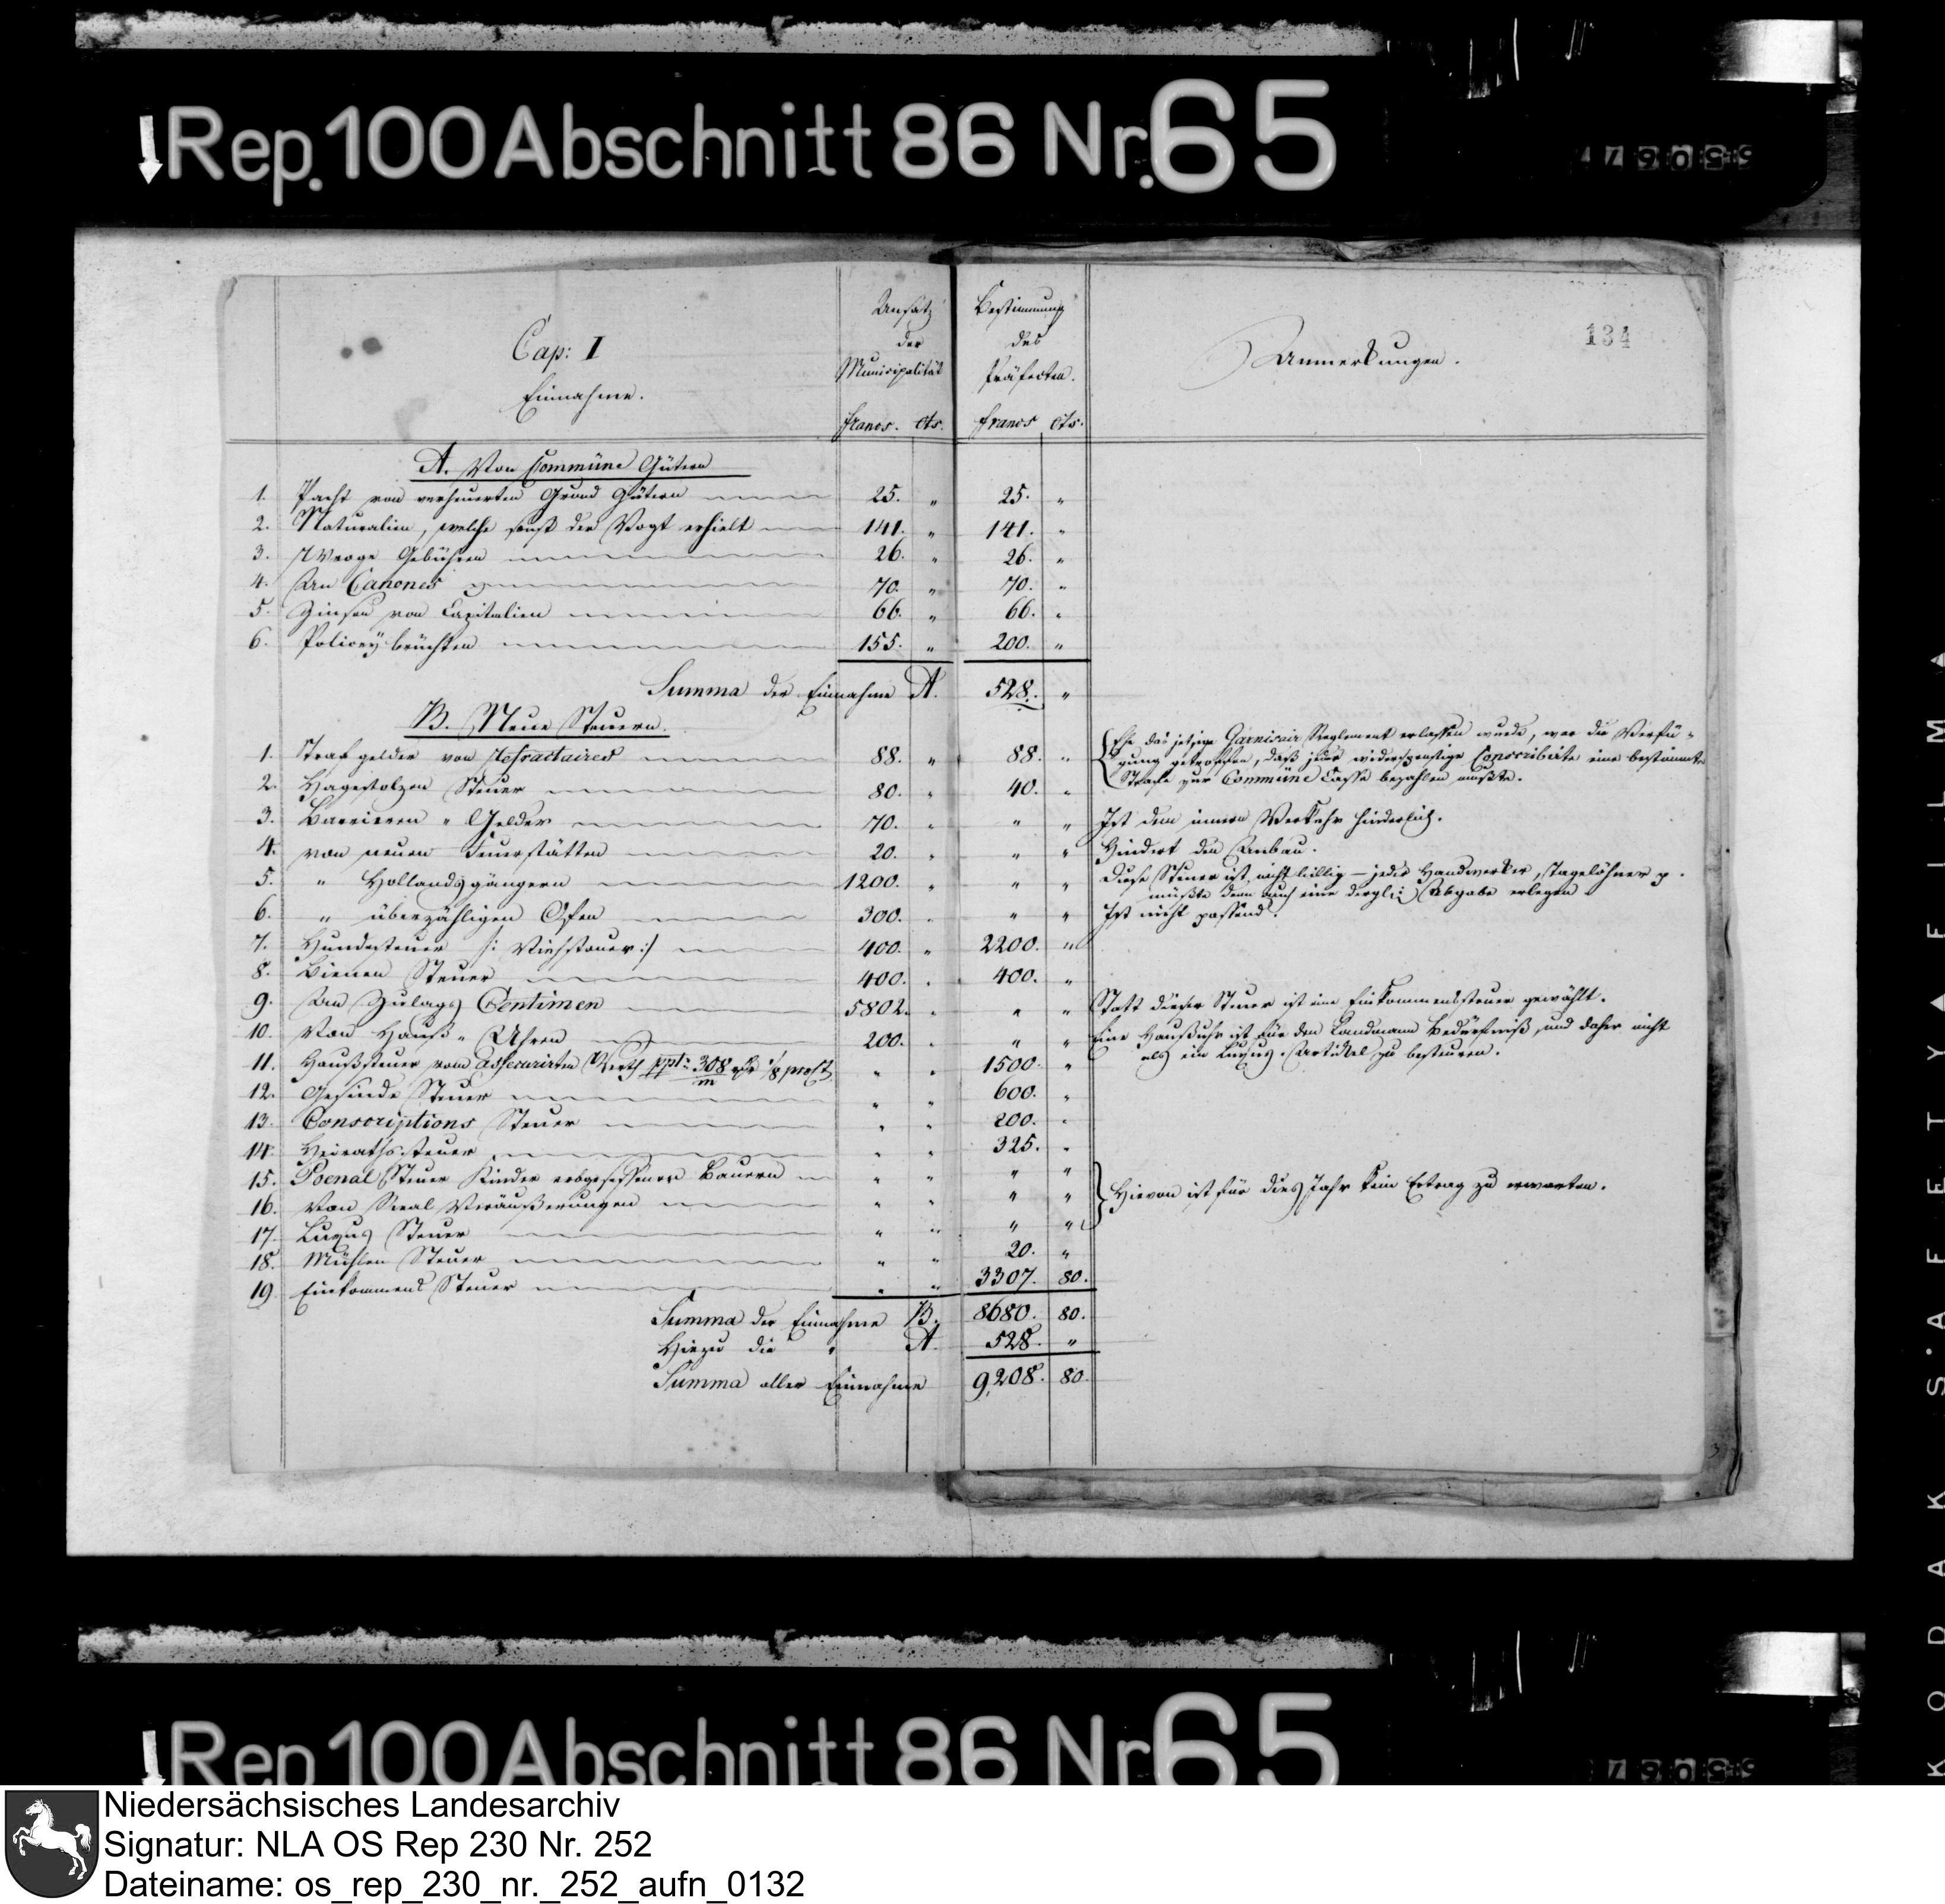 ↓Rep.100Abschnitt 86 Nr.65
134
Cap: I
Einnahme.
Ansatz
der
Municipalität
francs. Cts.
Bestimmung
des
Präfecten.
francs Cts.
Anmerkungen.
A. Von Commüne Gütern
1. Pacht von verheuerten Grund Gütern 25. „ 25. „
2. Naturalien, welche sonst der Vogt erhielt 141. „ 141. „
3. Wroge Gebühren 26. „ 26. „
4. An Canones 70. „ 70. „
5. Zinsen von Capitalien 66. „ 66. „
6. Policey brüchten 155. „ 200. „
Summa der Einnahme A. 528. „
B. Neue Steuern.
1. Straf gelder von Refractaires 88. „ 88. „
Ehe das jetzige Garnisair Reglement erlassen wurde, war die Verfü-
gung getroffen, daß jeder widerspenstige Conscribirte eine bestimmte
Strafe zur Commüne Casse bezahlen mußte.
2. Hagestolzen Steuer 80. „ 40. „
3. Barrieren - Gelder 70. „ „ „ Ist dem innern Verkehr hinderlich.
4. von neuen Feuerstätten 20. „ „ „ Hindert den Anbau.
5. „ Hollandsgängern 1200. „ „ „ Diese Steuer ist nicht billig — jeder Handwerker, Tagelöhner p.
müßte denn auch eine dergl: Abgabe erlegen
6. „ überzähligen Ofen 300. „ „ „ Ist nicht passend.
7. Hundesteuer /: Viehsteuer :/ 400. „ 2200. „
8. Bienen Steuer 400. „ 400. „
9. An Zulags Centimen 5802. „ „ „ Statt dieser Steuer ist eine Einkommensteuer gewählt.
10. Von Hauß - Uhren 200. „ „ „ Eine Haußuhr ist für den Landmann Bedürfniß, und daher nicht
als ein Luxus-Artikel zu besteuren.
11. Haußsteuer vom assecurirten Werth ppt: 308/m 1/8 proCt „ „ 1500. „
12. Gesinde Steuer „ „ 600. „
13. Conscriptions Steuer „ „ 200. „
14. Heirathssteuer „ „ 325. „
15. Poenal Steuer Kinder erbgesessener Bauern „ „ „ „
16. Von Real Veräußerungen „ „ „ „ Hievon ist für dies Jahr kein Ertrag zu erwarten.
17. Luxus Steuer „ „ „ „
18. Mühlen Steuer „ „ 20. „
19. Einkommens Steuer „ „ 3307. 80.
Summa der Einnahme B. 8680. 80.
Hiezu die „ A. 528. „
Summa aller Einnahme 9,208. 80.
Rep 100Abschnitt 86 Nr65
KODAK S'AFETY▲FILM▲
Niedersächsisches Landesarchiv
Signatur: NLA OS Rep 230 Nr. 252
Dateiname: os_rep_230_nr._252_aufn_0132